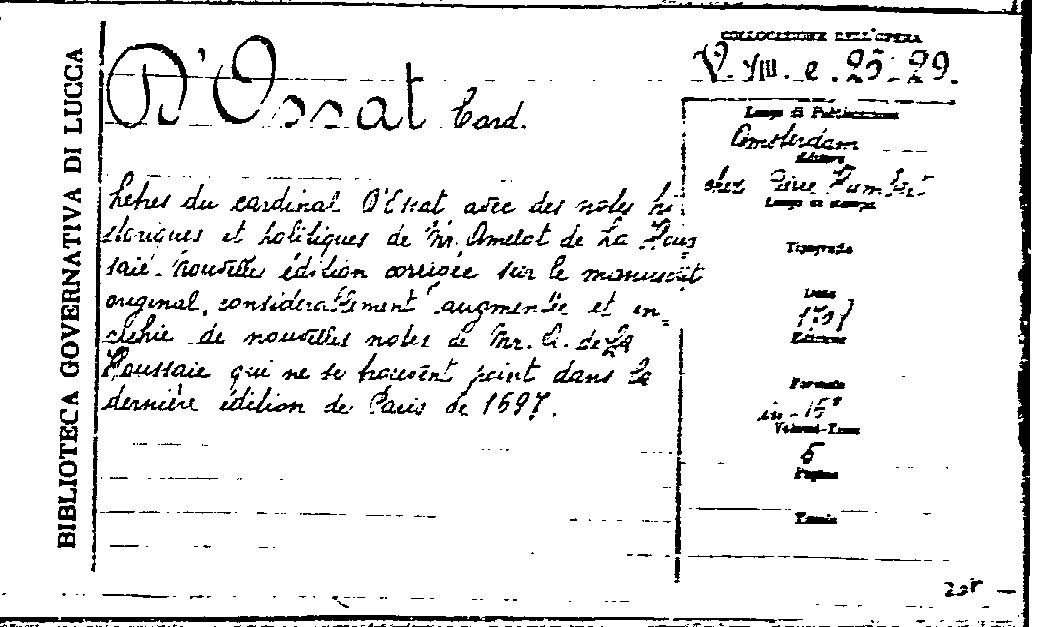 BIBLIOTECA GOVERNATIVA DI LUCCA
D'Ossat Card.
Lettres du cardinal D'Ossat avec des notes hi-
storiques et politiques de Mr. Amelot de La Hous
saie. Nouvelles édition corrigée sur le manuscrit
original, considerablement augmentée et en-
richie de nouvelles notes de Mr. A. de La
Houssaie qui ne se trouvent point dans la
dernière édition de Paris de 1697.
COLLOCAZIONE DELL'OPERA
V. VIII. e. 25-29.
Luogo di Pubblicazione
Amsterdam
Editore
chez Pierre Humbert
Luogo di stampa
Tipografo
Data
Edizione
Formato
Volumi-Tomi
5
Pagine
Tavole